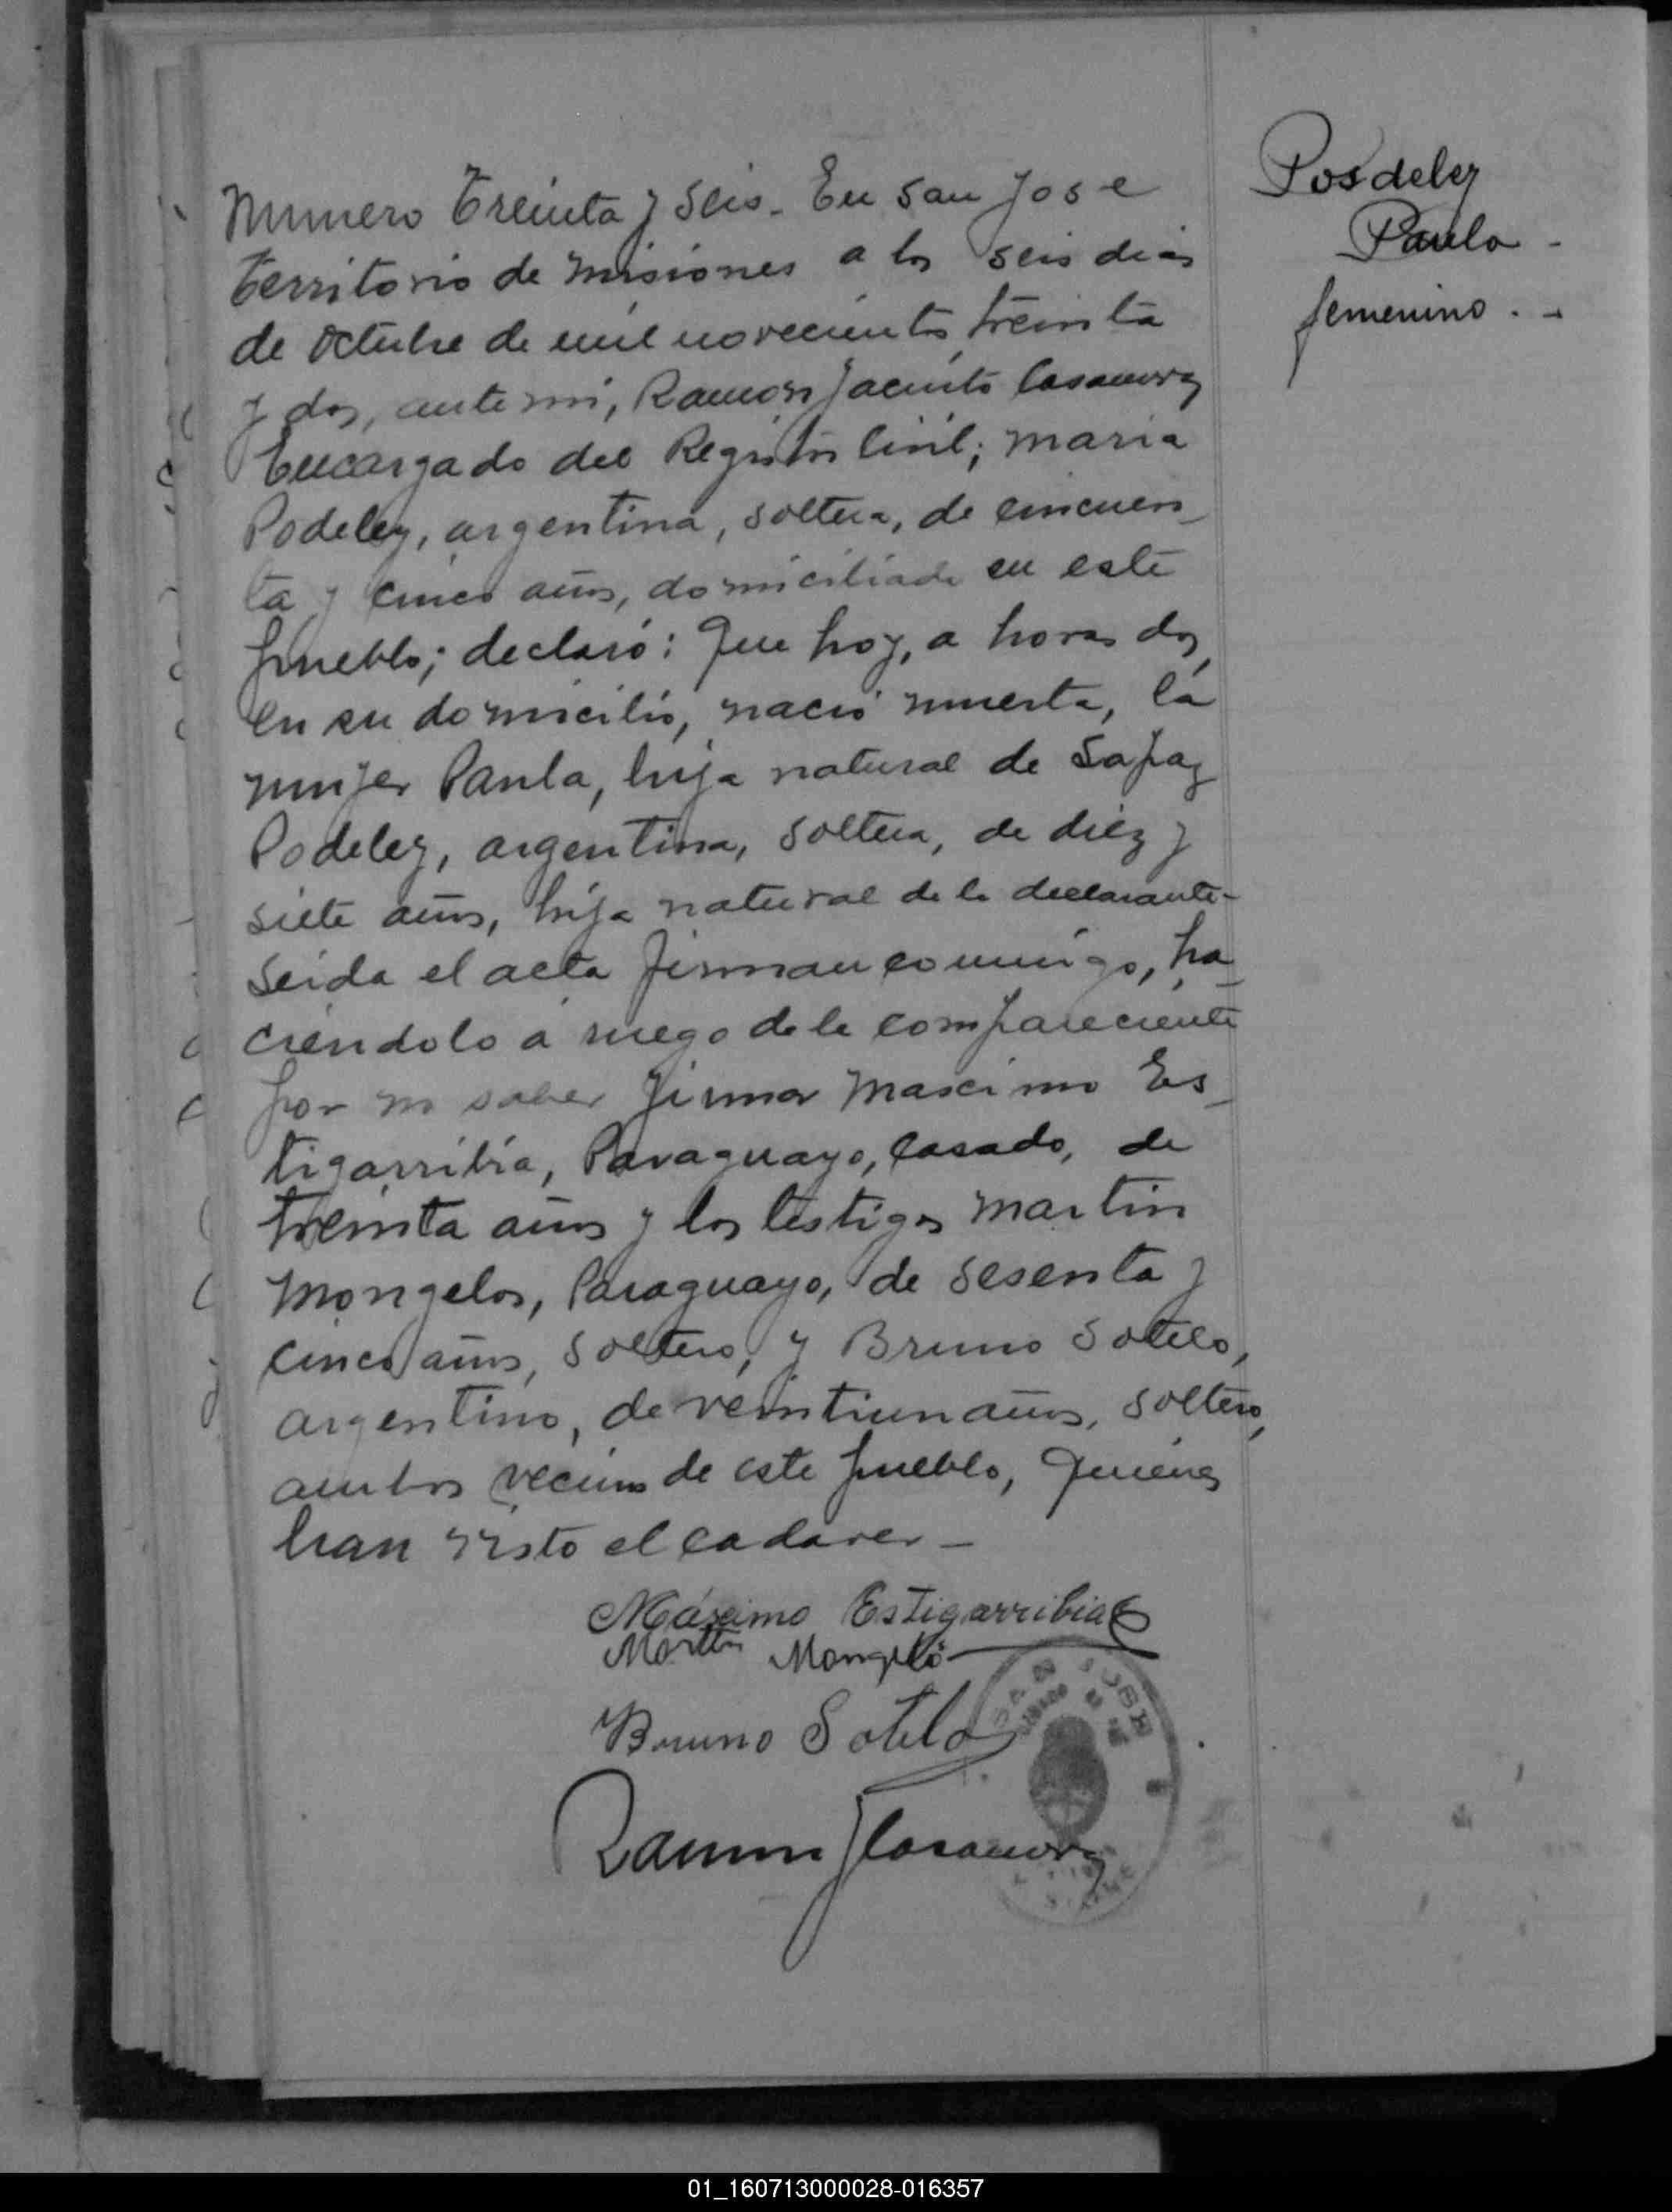 Posdeley
Paula -
femenino . -
Numero treinta y seis - En San Jose
territorio de Misiones a los seis dias
de octubre de mil novecientos treinta
y dos, ante mi, Ramon Jacinto Casanova
Encargado del Registro Civil; Maria
Podeley, argentina, soltera, de cincuen_
ta y cinco años, domiciliada en este
pueblo; declaró: Que hoy, a horas dos,
en su domicilio, nació muerta, la
mujer Paula, hija natural de
Podeley, argentina, soltera, de diez y
siete años, hija natural de la declarante-
Leida el acta firman conmigo, ha_
ciendolo a ruego de la compareciente
por no saber firmar Mascimo Es_
tigarribia, Paraguayo, casado, de
treinta años y los testigos Martin
Mongelos, Paraguayo, de sesenta y
cinco años, soltero, y Bruno Sotelo,
argentino, de veintiun años, soltero,
ambos vecinos de este pueblo, quienes
han visto el cadaver -
Máximo Estigarribia
Martin Mongeló
Bruno Sotelo
Ramon J Casanova
SAN JOSE
01_160713000028-016357